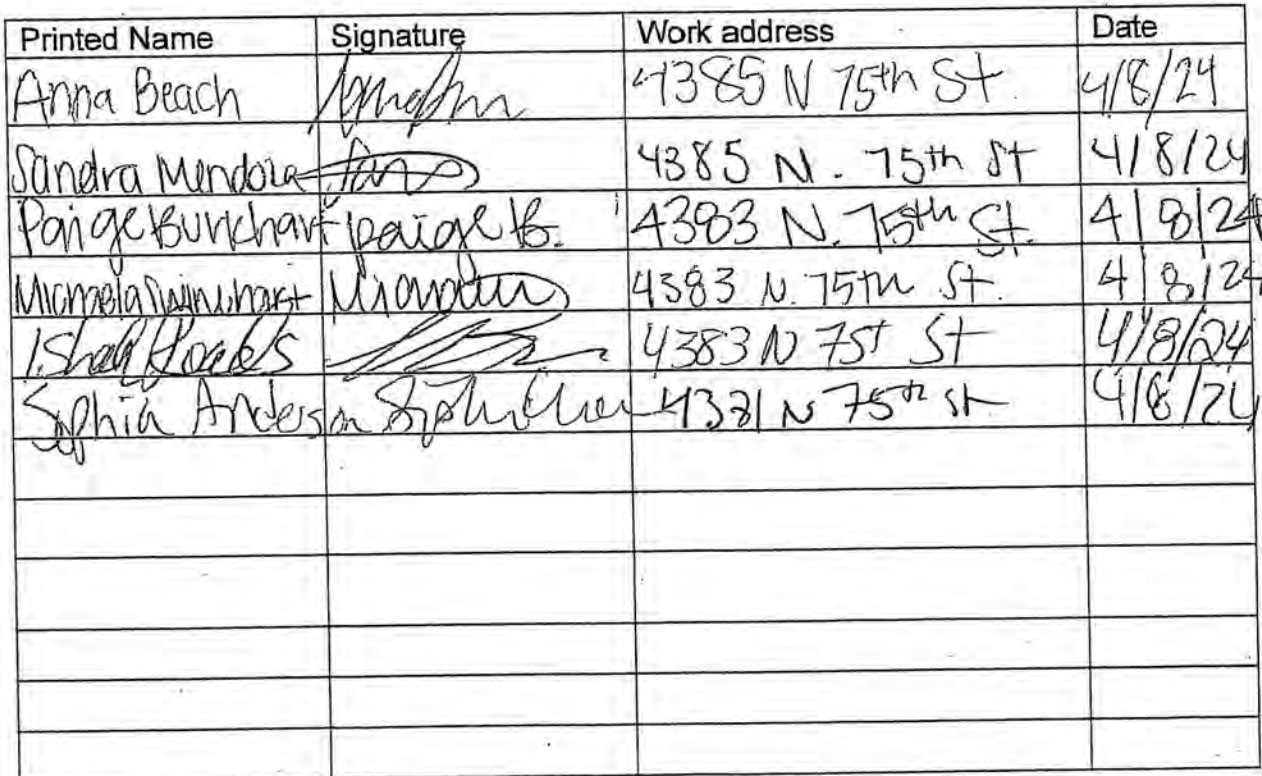 Printed Name Signature Work address Date
Anna Beach 4385 N 75th St. 4/8/24
Sandra Mendoza 4385 N. 75th St 4/8/24
Paige Burkhart paige B. 4383 N. 75th St. 4/8/24
4383 N. 75th St. 4/8/24
4383 N 75t St 4/8/24
Sophia Anderson 4381 N 75th St 4/8/24